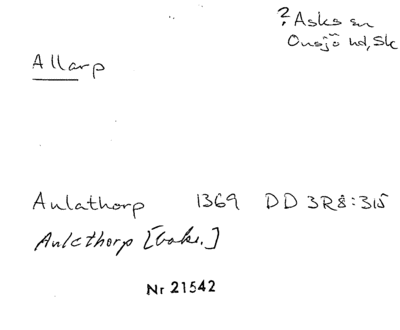 ? Asks sn
Onsjö hd, Sk
Allarp
Aulathorp 1369 DD 3R8:315
Aulathorp [baks.]
Nr 21542